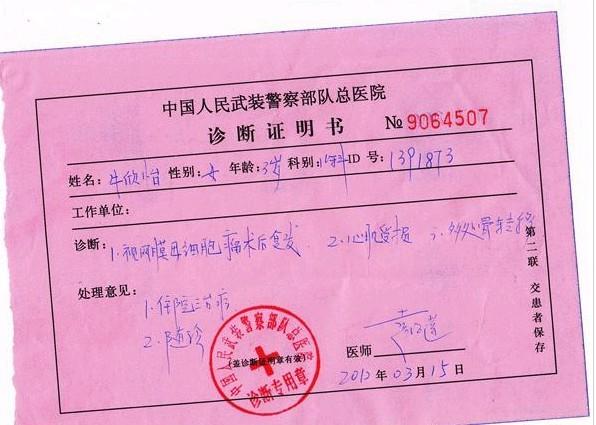 中国人民武装警察部队总医院
诊断证明书 № 9064507
姓名：牛欣怡 性别：女 年龄：3岁 科别：儿科 ID号：1391873
工作单位：
诊断：1.视网膜母细胞瘤术后复发 2.心肌受损 3.多处骨转移
处理意见：
1.住院治疗
2.随诊
中国人民武装警察部队总医院
（盖诊断证明章有效）
诊断专用章
医师
2012年03月15日
第二联 交患者保存